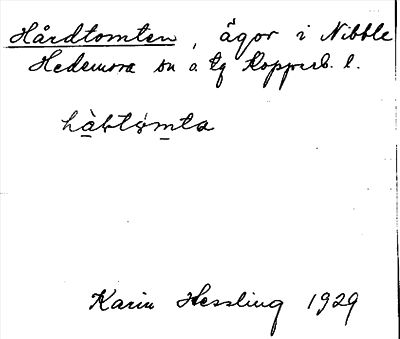 Hårdtomten, ägor i Nibble
Hedemora sn o. tg Kopparb. l.
hàktǫ̀mta
Karin Hessling 1929